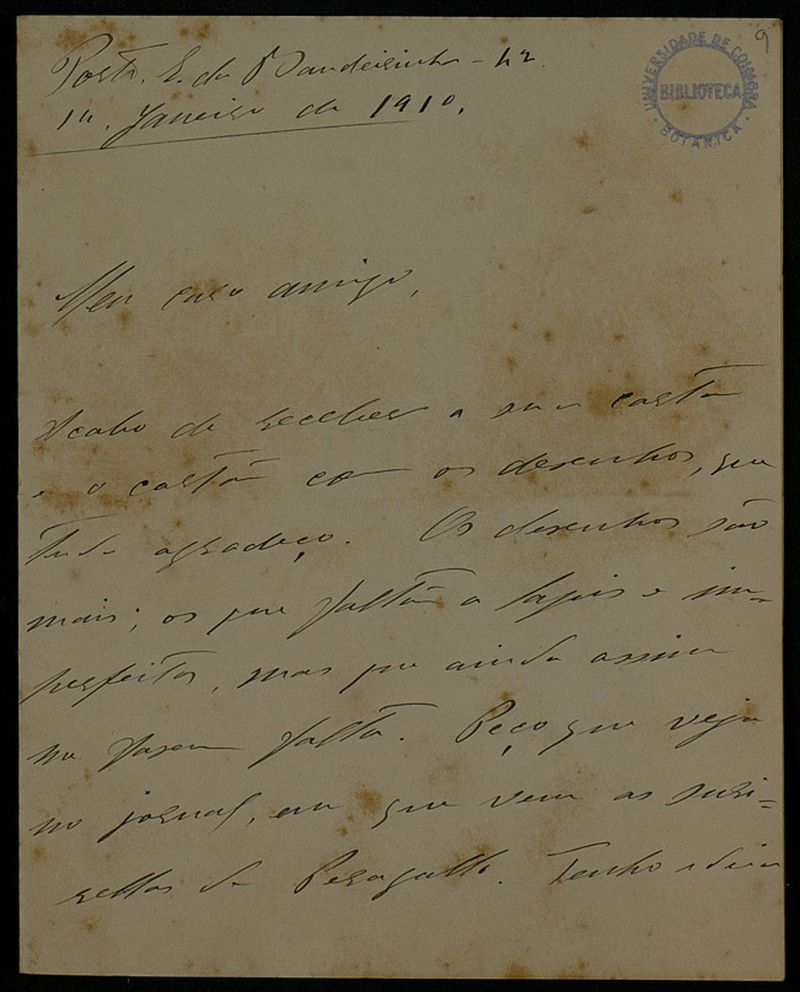 9
UNIVERSIDADE DE COIMBRA
BIBLIOTECA
BOTANICA
Porto. R. da Bandeirinha - 42.
14. Janeiro de 1910.
Meu caro amigo,
Acabo de receber a sua carta
e o cartão com os desenhos, que
tudo agradeço. Os desenhos são
mais; os que faltão a lapis e im-
perfeitos, mas que ainda assim
me fazem falta. Peço que veja
no jornal, em que vem as
de Peragallo. Tenho ideia